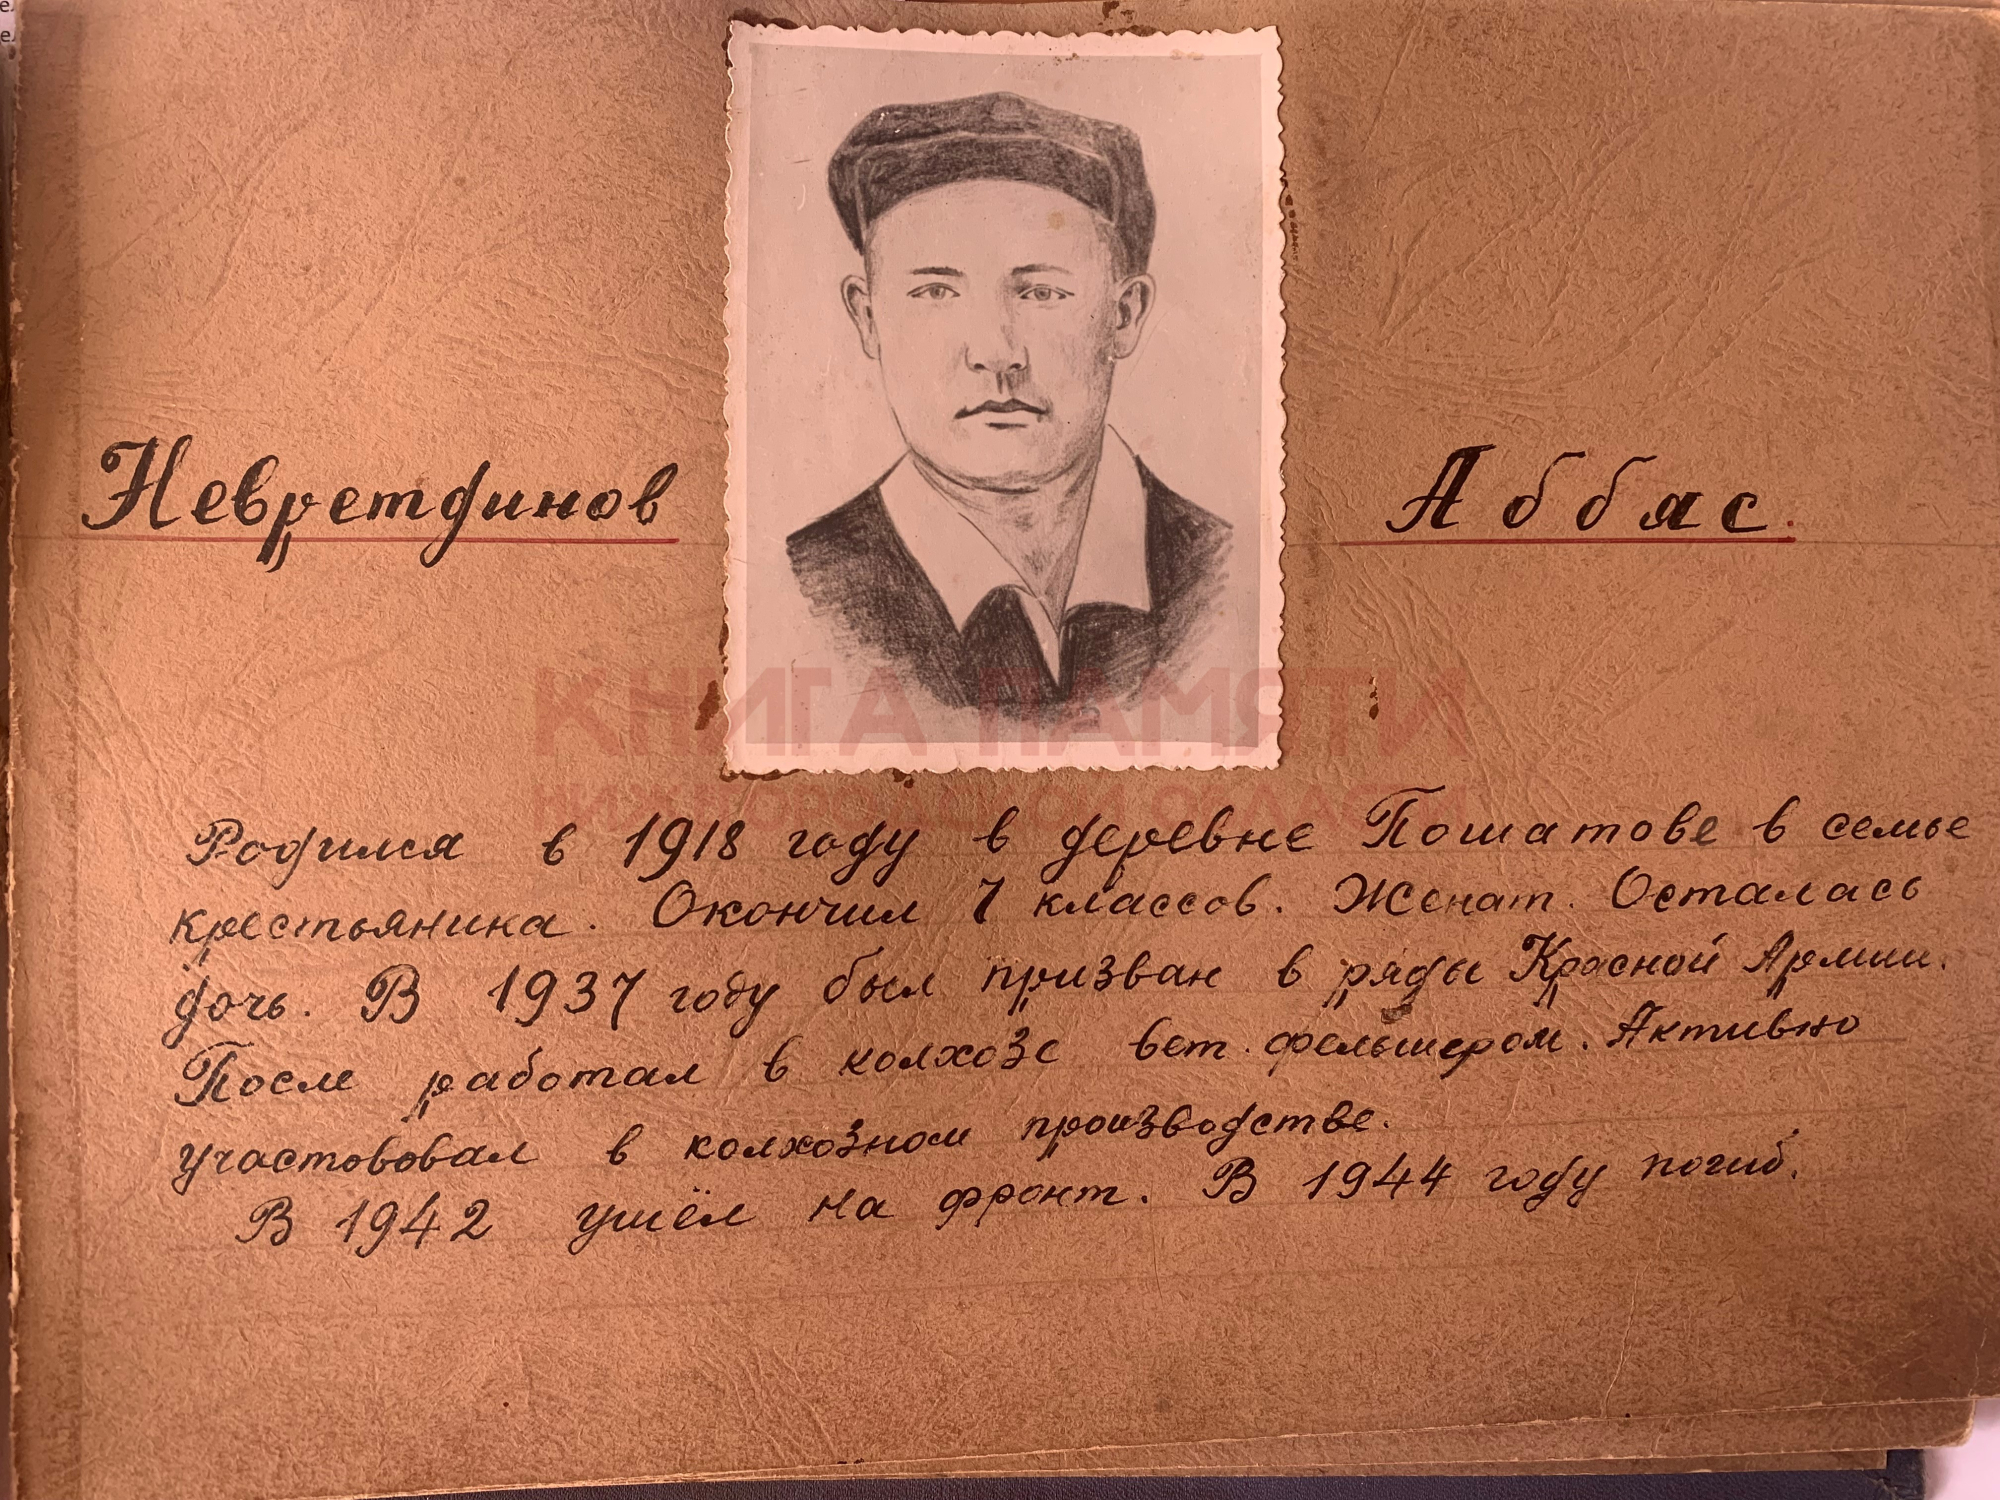 Невретдинов Аббяс.
КНИГА ПАМЯТИ
НИЖЕГОРОДСКОЙ ОБЛАСТИ
Родился в 1918 году в деревне Пошатове в семье
крестьянина. Окончил 7 классов. Женат. Осталась
дочь. В 1937 году был призван в ряды Красной Армии.
После работал в колхозе вет. фельшером. Активно
участвовал в колхозном производстве.
В 1942 ушёл на фронт. В 1944 году погиб.